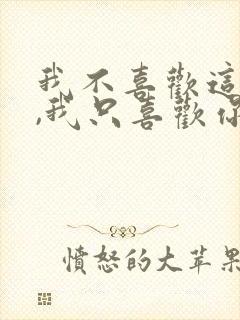 我不喜歡這
,我只喜歡你
憤怒的大苹果